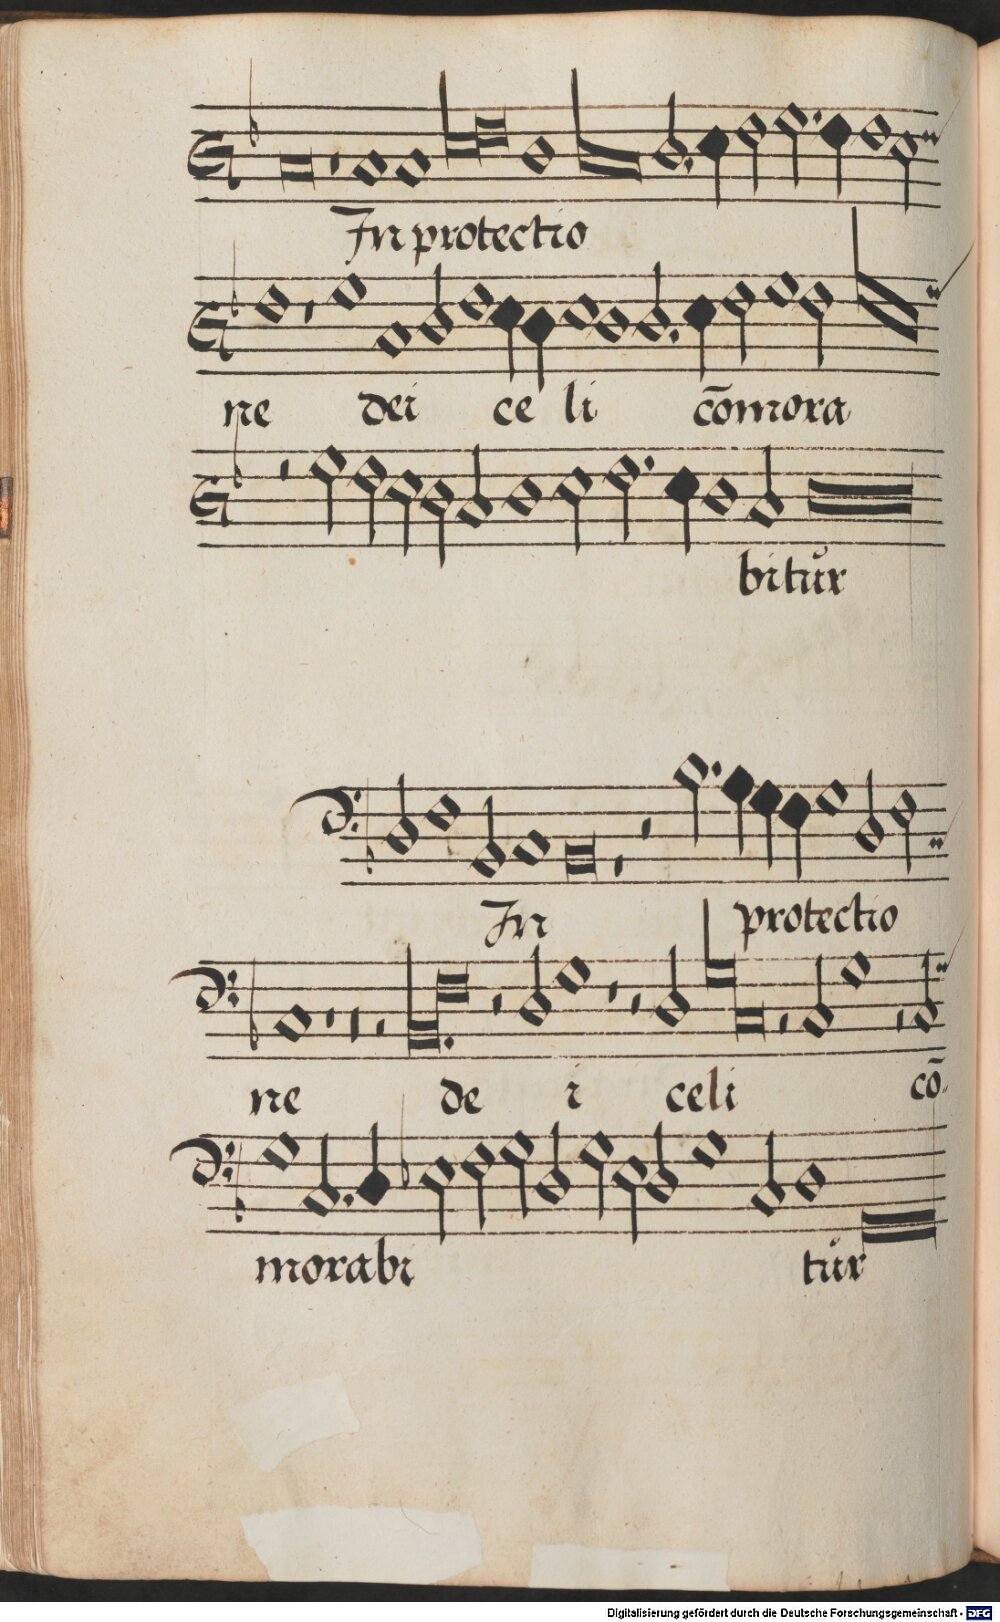 In protectio
ne dei ce li cōmora
bitůr
In protectio
ne de i celi cō
morabi tůr
Digitalisierung gefördert durch die Deutsche Forschungsgemeinschaft - DFG